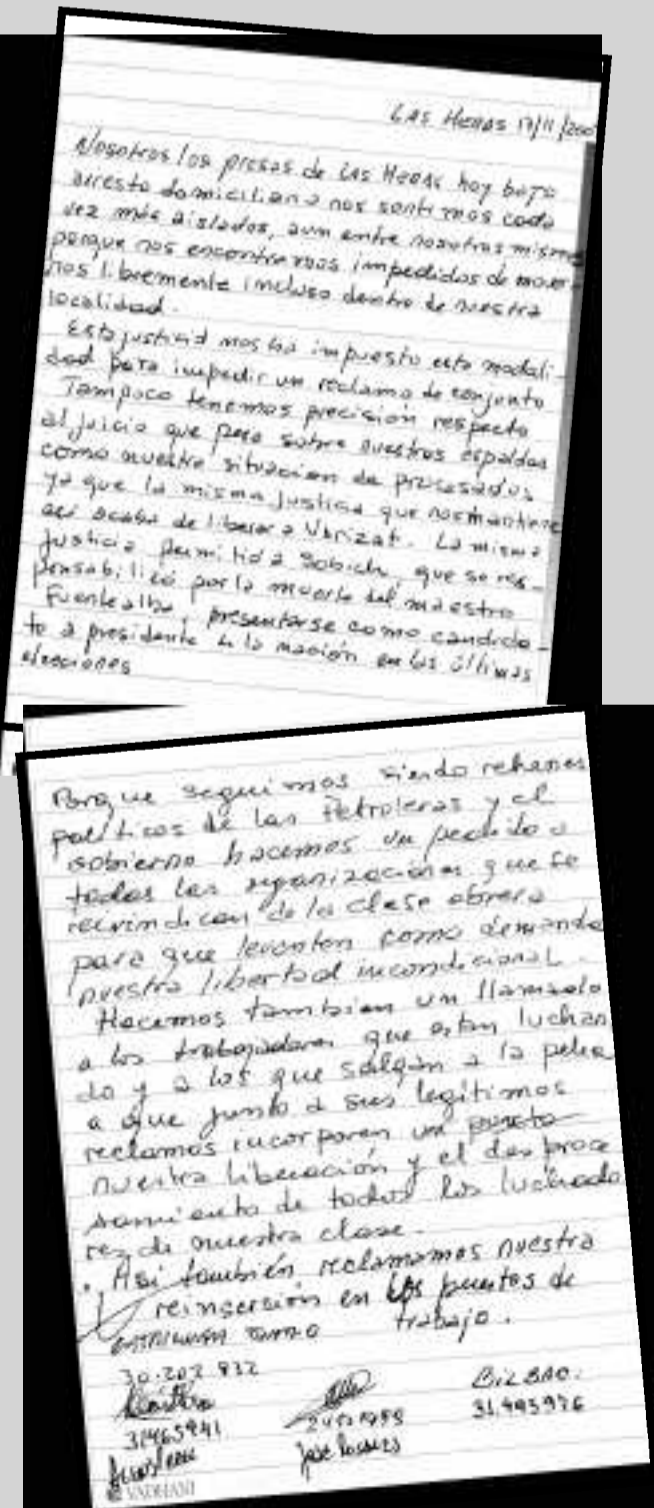 LAS HERAS 17/11/200
Nosotros los presos de Las Heras hoy bajo
arresto domiciliario nos sentimos cada
vez más aislados, aun entre nosotros mismo
porque nos encontramos impedidos de mover-
nos libremente incluso dentro de nuestra
localidad.
Esta justicia nos ha impuesto esta modali-
dad para impedir un reclamo de conjunto
Tampoco tenemos precisión respecto
al juicio que pesa sobre nuestras espaldas
como nuestra situacion de procesados
ya que la misma justicia que nos mantiene
así acaba de liberar a Varizat. La misma
justicia permitió a Sobich, que se res-
ponsabilizó por la muerte del maestro
Fuentealba, presentarse como candida-
to a presidente de la nación en las últimas
elecciones
Porque seguimos siendo rehenes
políticos de las Petroleras y el
gobierno hacemos un pedido a
todas las organizaciones que se
reivindican de la clase obrera
para que levanten como demanda
nuestra libertad incondicional.
Hacemos tambien un llamado
a los trabajadores que estan luchan
do y a los que salgan a la pelea
a que junto a sus legítimos
reclamos incorporen un punto
nuestra liberación y el desproce
samiento de todos los luchado
res de nuestra clase.
. Asi también reclamamos nuestra
reinserción en los puestos de
trabajo.
30.202.922
BILBAO.
31465941
31.445976